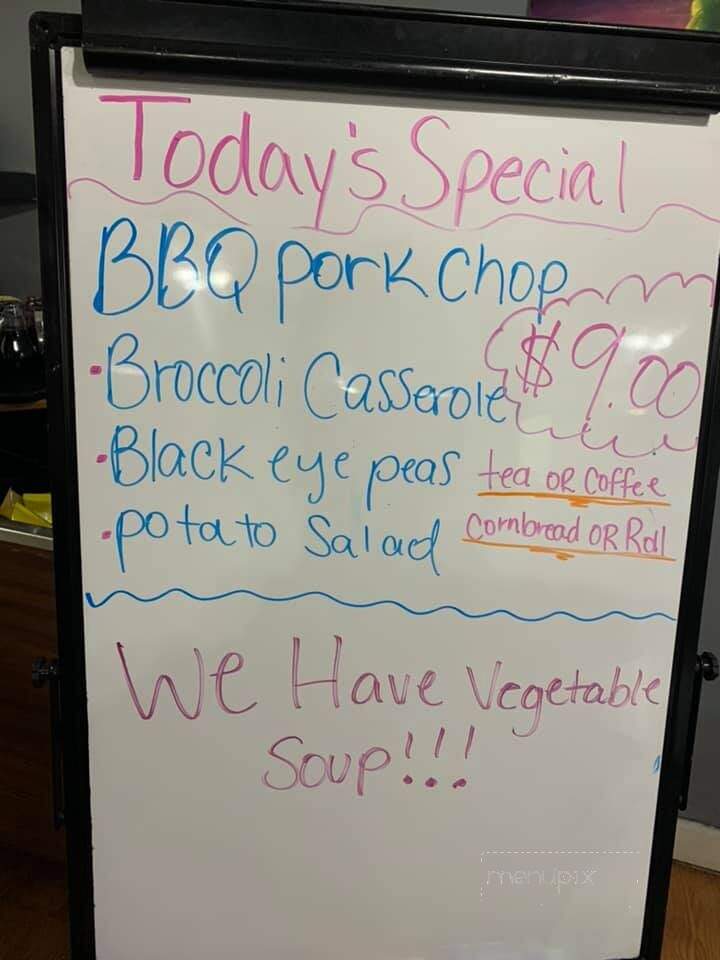 Today's Special
BBQ pork chop
$9.00
• Broccoli Casserole
• Black eye peas
tea OR Coffee
• potato Salad
Cornbread OR Roll
We Have Vegetable
Soup!!!
menupix